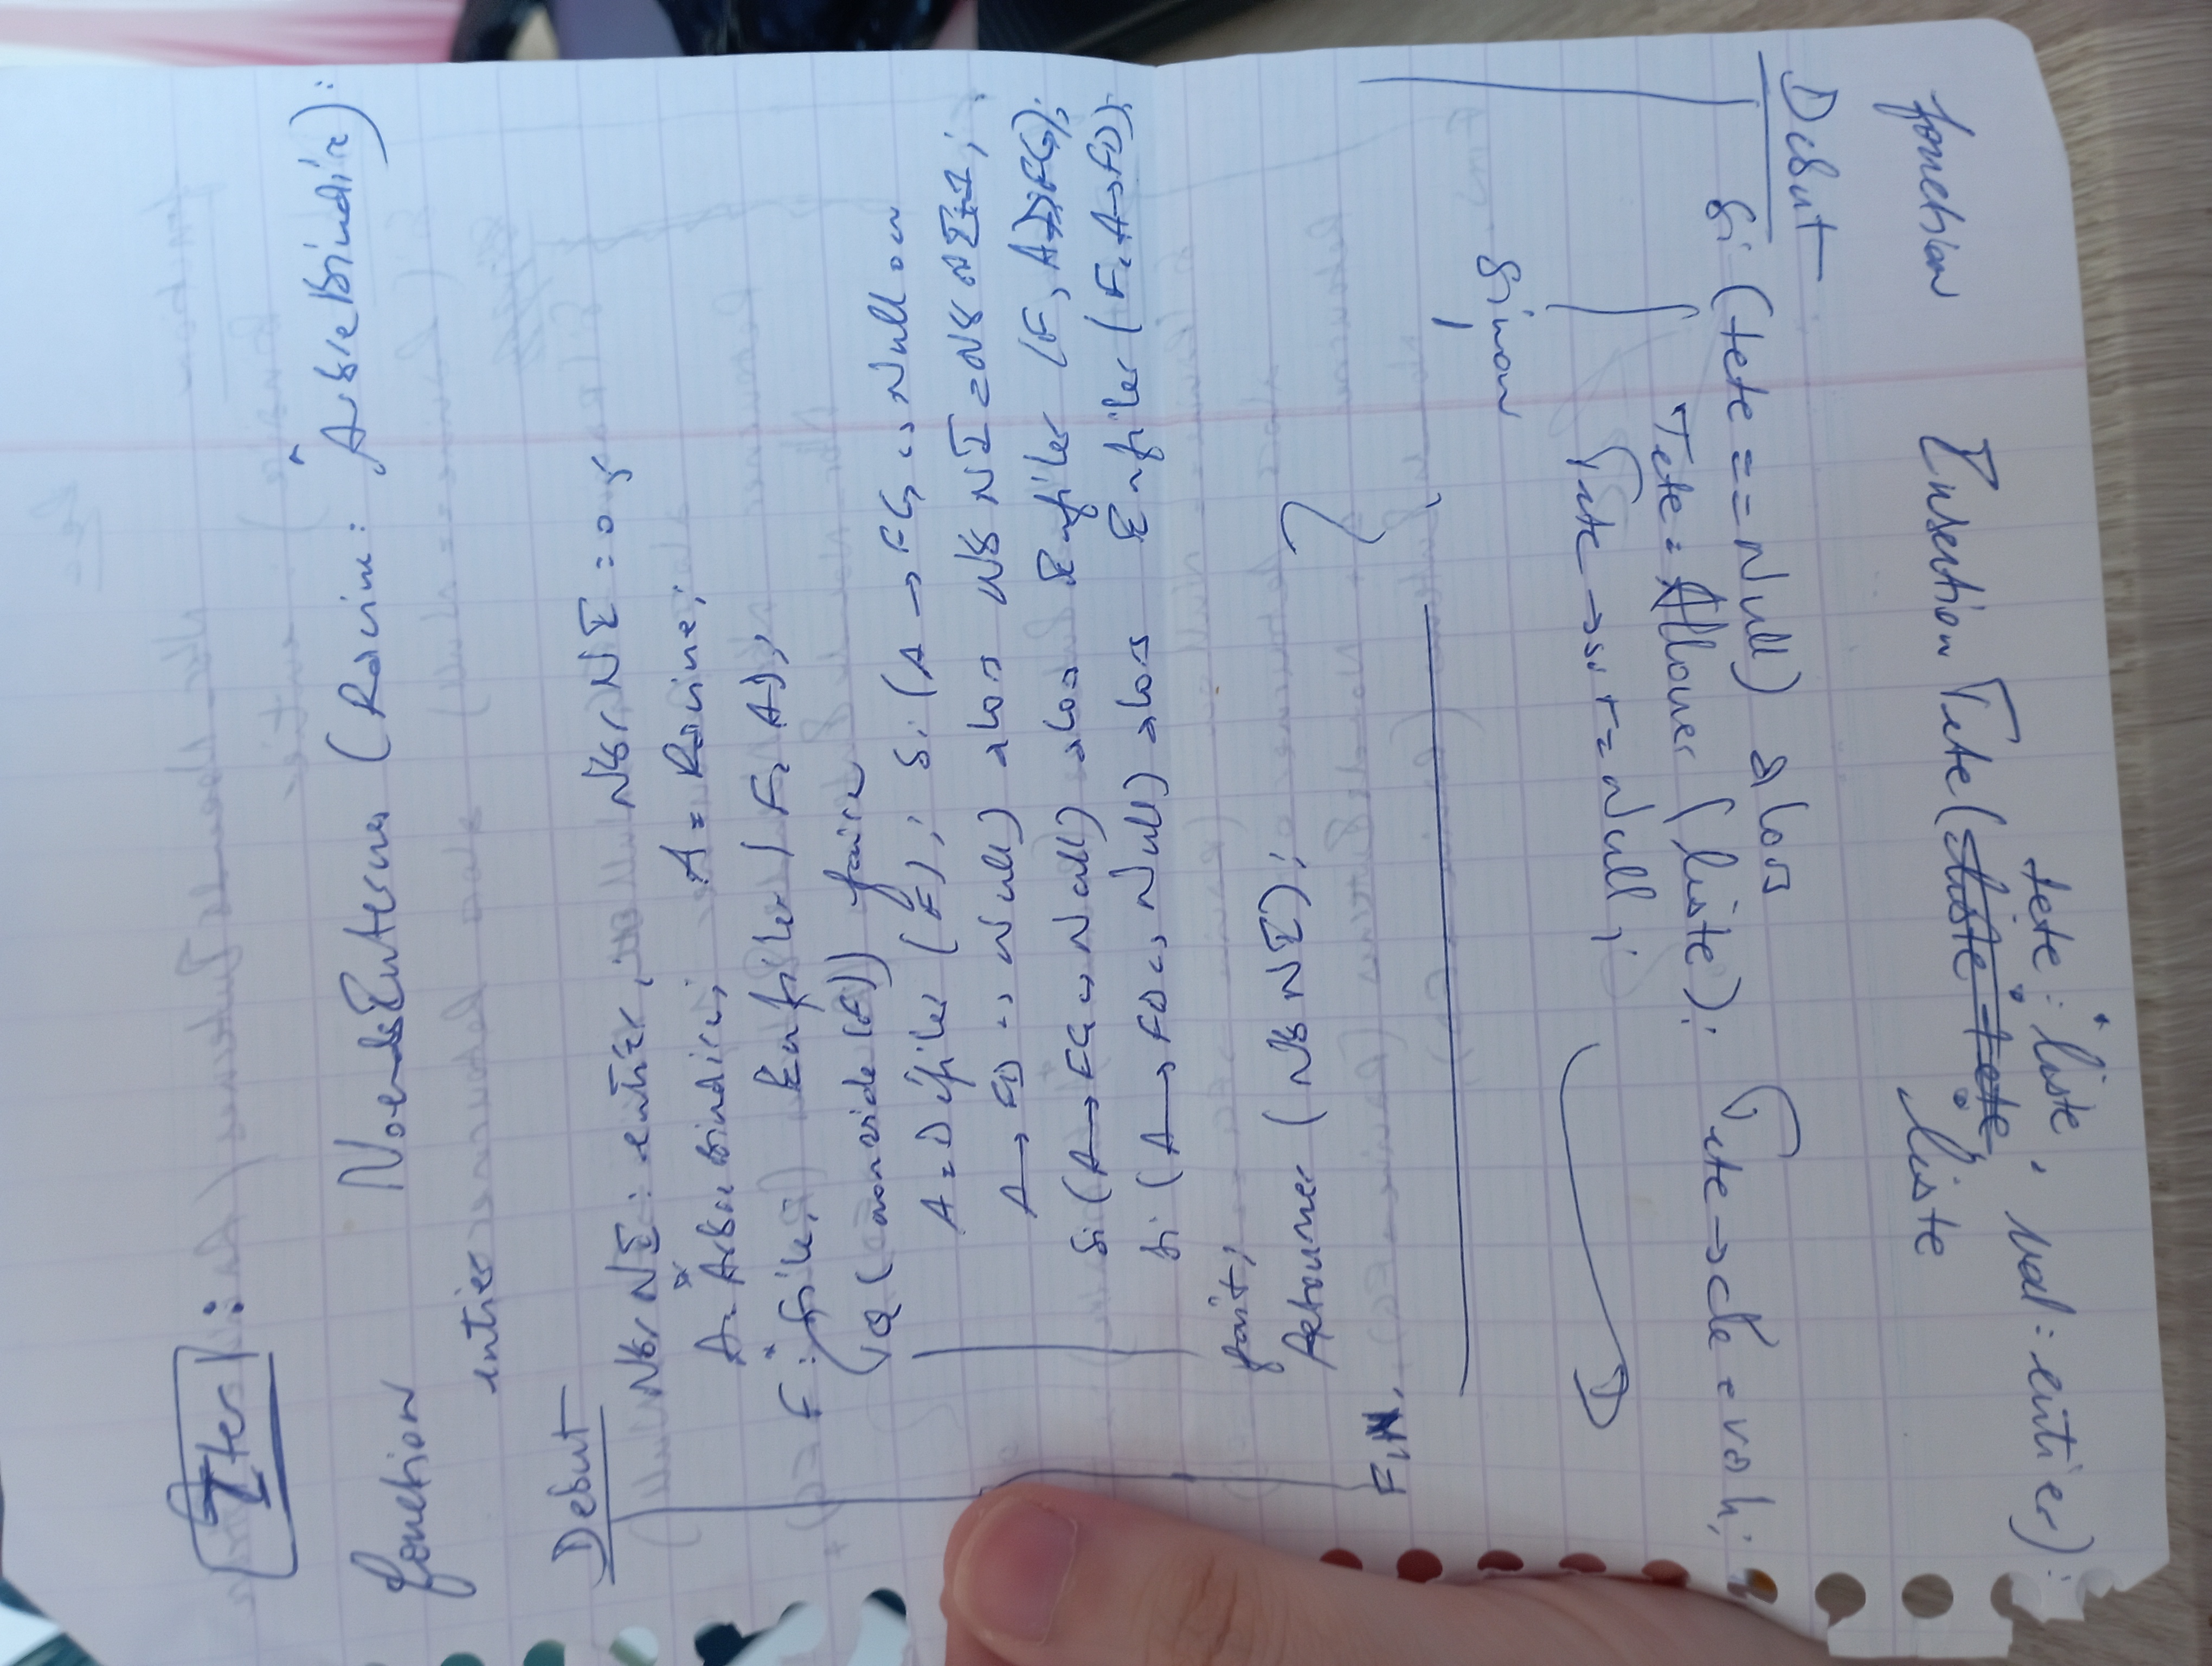 Iter :
fonction NoeudsInternes (Racine: *ArbreBinaire):
entier
Debut
NbrNI : entier, NbrNI = 0 ;
A: *ArbreBinaire; A = Racine;
F : *File; Enfiler ( F, A);
TQ ( nonvide (F)) faire
A = Défiler (F) ; Si (A → FG <> Null ou
A → FD <> Null) alors NbNI = NbNI+1 ;
Si (A → FG <> Null) alors Enfiler (F, A→FG);
Si (A → FD <> Null) alors Enfiler (F, A→FD);
fait;
Retourner (NbNI) ;
FIN.
fonction Insertion Tete (
tete : *liste, val : entier) :
*liste
Debut
Si (tete == Null) alors
Tete = Allouer (liste); Tete → cle = val;
Tete → svt = Null ;
Sinon